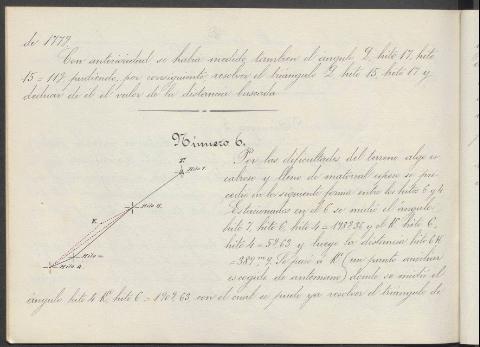 de 1777.
Con anterioridad se habia medido tambien el ángulo D, hito 17, hito
15 = 117 pudiendo, por consiguiente, resolver el triangulo D hito 15 hito 17 y
deducir de él el valor de la distancia buscada
Número 6.
Por las dificultades del terreno algo es
cabroso y lleno de matorral espeso se pro
cedió en la siguiente forma entre los hitos 6 y 4
Estacionados en el 6 se midió el ángulo
hito 7, hito 6, hito 4 = 198236 y el K hito 6,
hito 4 = 5963 y luego la distancia hito 6 K
= 389m 9. Se pasó á K (un punto auxiliar
escogido de antemano) donde se midió el
ángulo hito 4 K hito 6 = 190963 con el cual se pudo ya resolver el triángulo de
Hito 7.
K
Hito 6.
Hito 4.